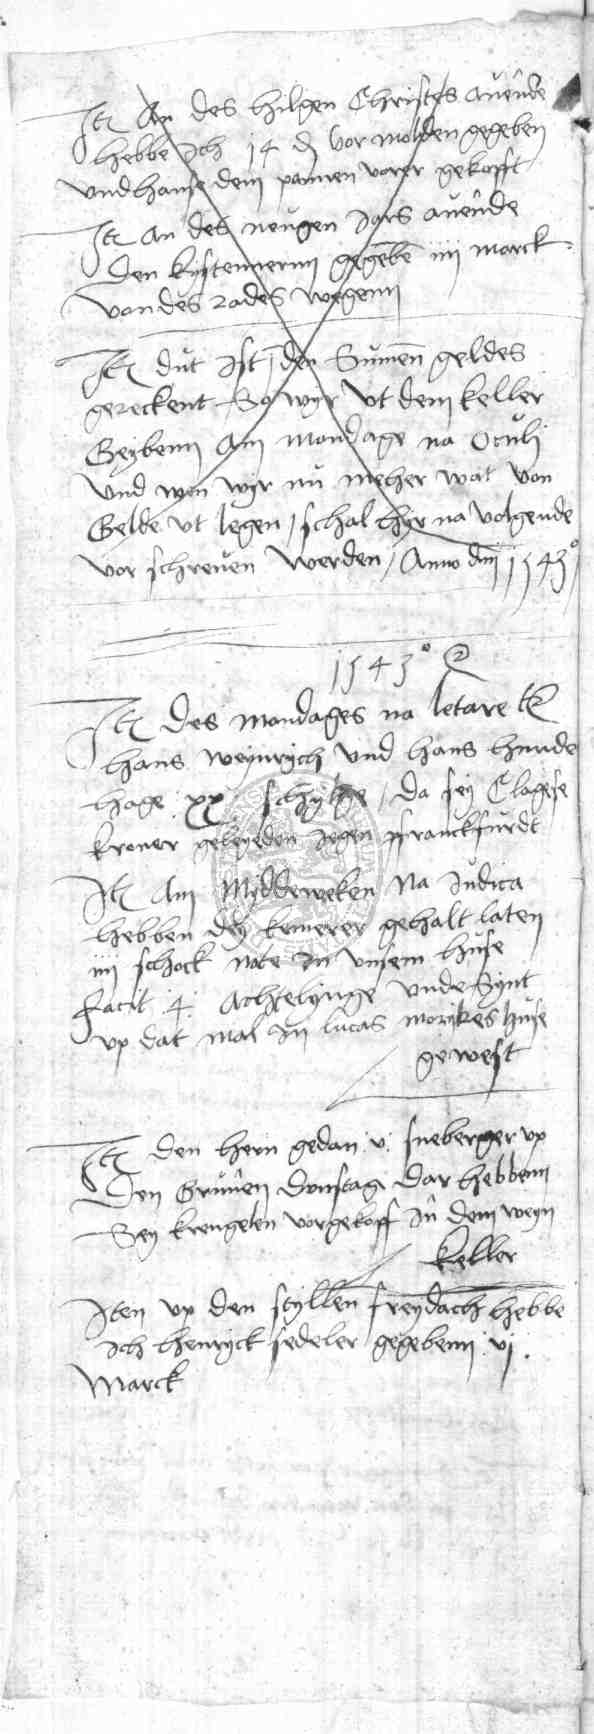 Itē An des hilgen Christes avende
hebbe Ich 14 d vor molden gegeben
und hanse dem pannen vorer gekofft
Itē An des neugen Jars avende
Den kystennernn gegebē iiii marck
von des rades wegenn
Itē dut Ist den Summen geldes
gereckent So wyr ut dem keller
Geybenn Am mondage na Oculi
und wen wyr nu meher wat von
Gelde ut legen / schal hyr na volgende
vor schreven werden / Anno dm 1543°
1543°
Itē des mondages na letare
hans weynrych und hans hunde
hage xx schyllge / da sey Clagese
kroner geleyeden iegen franckfurdt
Itē Am Myddeweken Na Judica
hebben dey kemerer gehalt laten
iiii schock note In unsem huse
facit 4 Achtelynge unde Synt
up dat mal In lucas morikes huse
gewest
Itē den hern gedan v sneberger up
Den Grunen donstag dar hebbenn
Sey krengelen vorgekoff In dem weyn
keller
Item up den styllen freydach hebbe
Ich henryck sedeler gegebenn vi
Marck